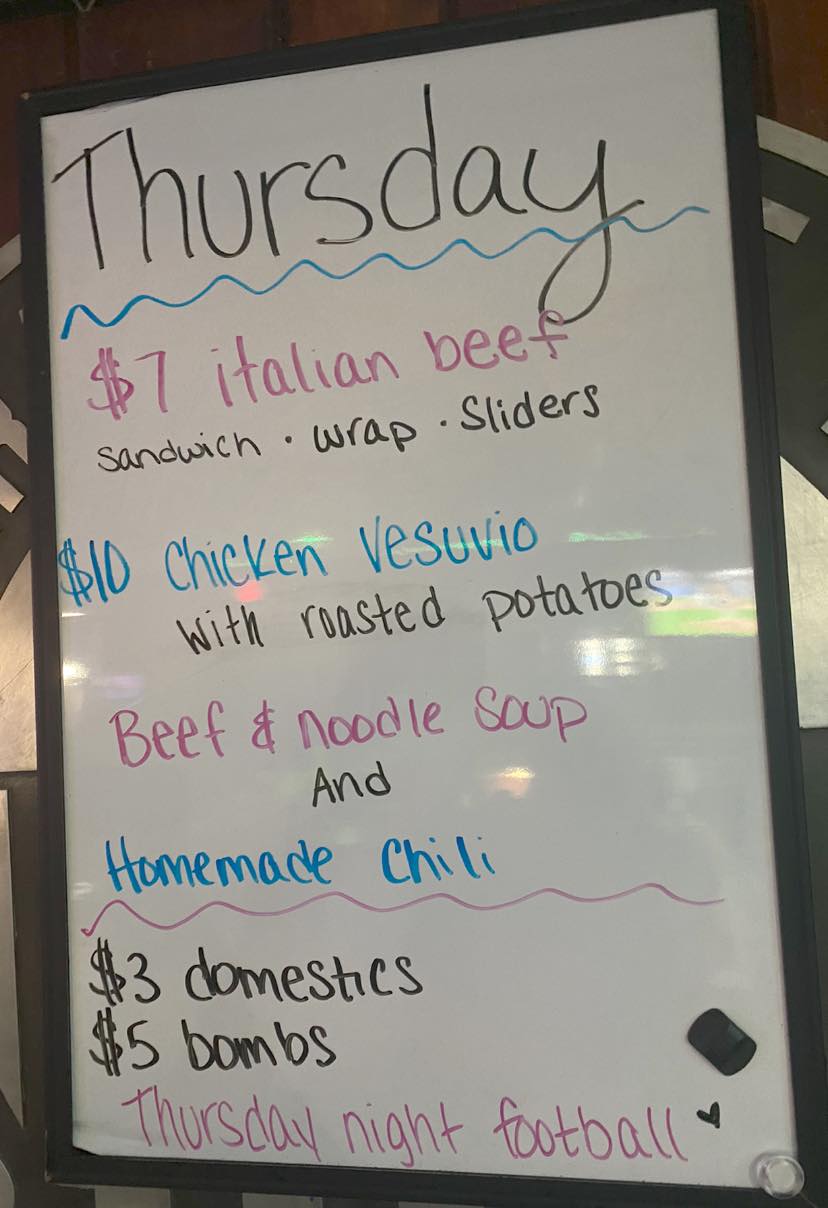 Thursday
$7 italian beef
sandwich · wrap · Sliders
$10 Chicken Vesuvio
with roasted potatoes
Beef & noodle Soup
And
Homemade Chili
$3 domestics
$5 bombs
Thursday night football